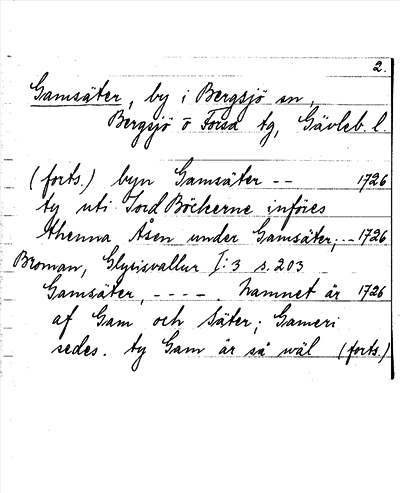 2.
Gamsäter, by i Bergsjö sn,
Bergsjö o Forsa tg, Gävleb. l.
(forts.) byn Gamsäter -- 1726
ty uti Jord Böckerne införes
thenna Åsen under Gamsäter; -- 1726
Broman, Glysisvallur I:3 s. 203
Gamsäter, ---- . Namnet är 1726
af Gam och Säter; Gameri
sedes. ty Gam är så wäl (forts.)